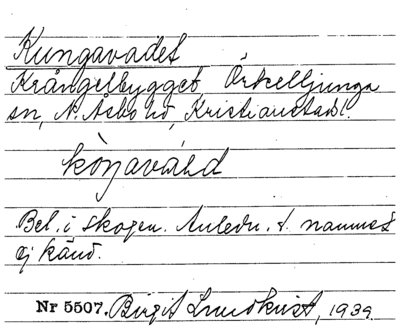 Kungavadet
Krångelbygget, Örkelljunga
sn, N. Åsbo hd, Kristianstads l.
Bel. i skogen. Anledn. t. namnet
ej känd.
Nr 5507. Birgit Lundkvist, 1939